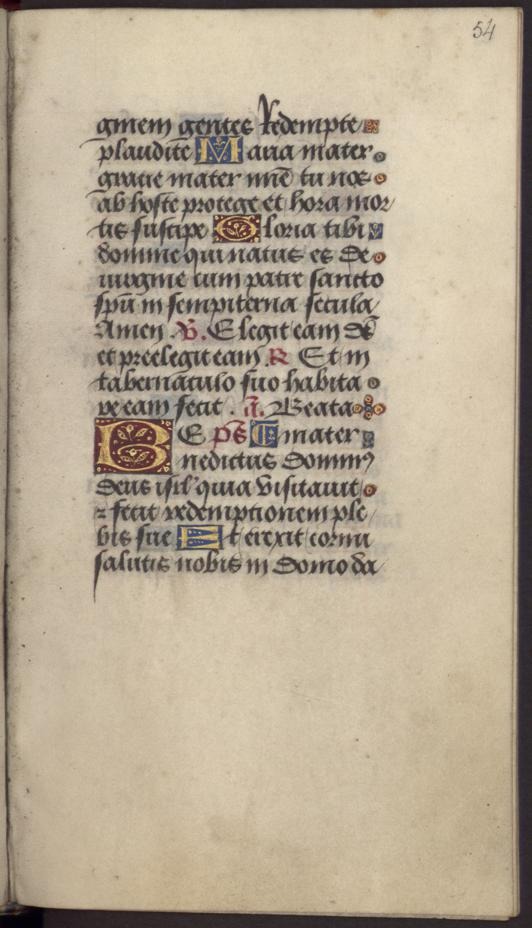 54
gınem gentes redempte
plaudite Maria mater
gratie mater mīe tu nos
ab hoste protege et hora mor
tis suscipe Gloria tibi
domine qui natus es de
uirgine cum patre sancto
spū in sempiterna secula
Amen .V. Elegit eam ds̄
et preelegit eam R Et in
tabernaculo suo habita
re eam fecit . a. Beata
E ps̄ mater
Benedictus Dominꝰ
deus isrl' quia visitauit
⁊ fecit redemptionem ple
bis sue Et erexit cornu
salutis nobis in domo da